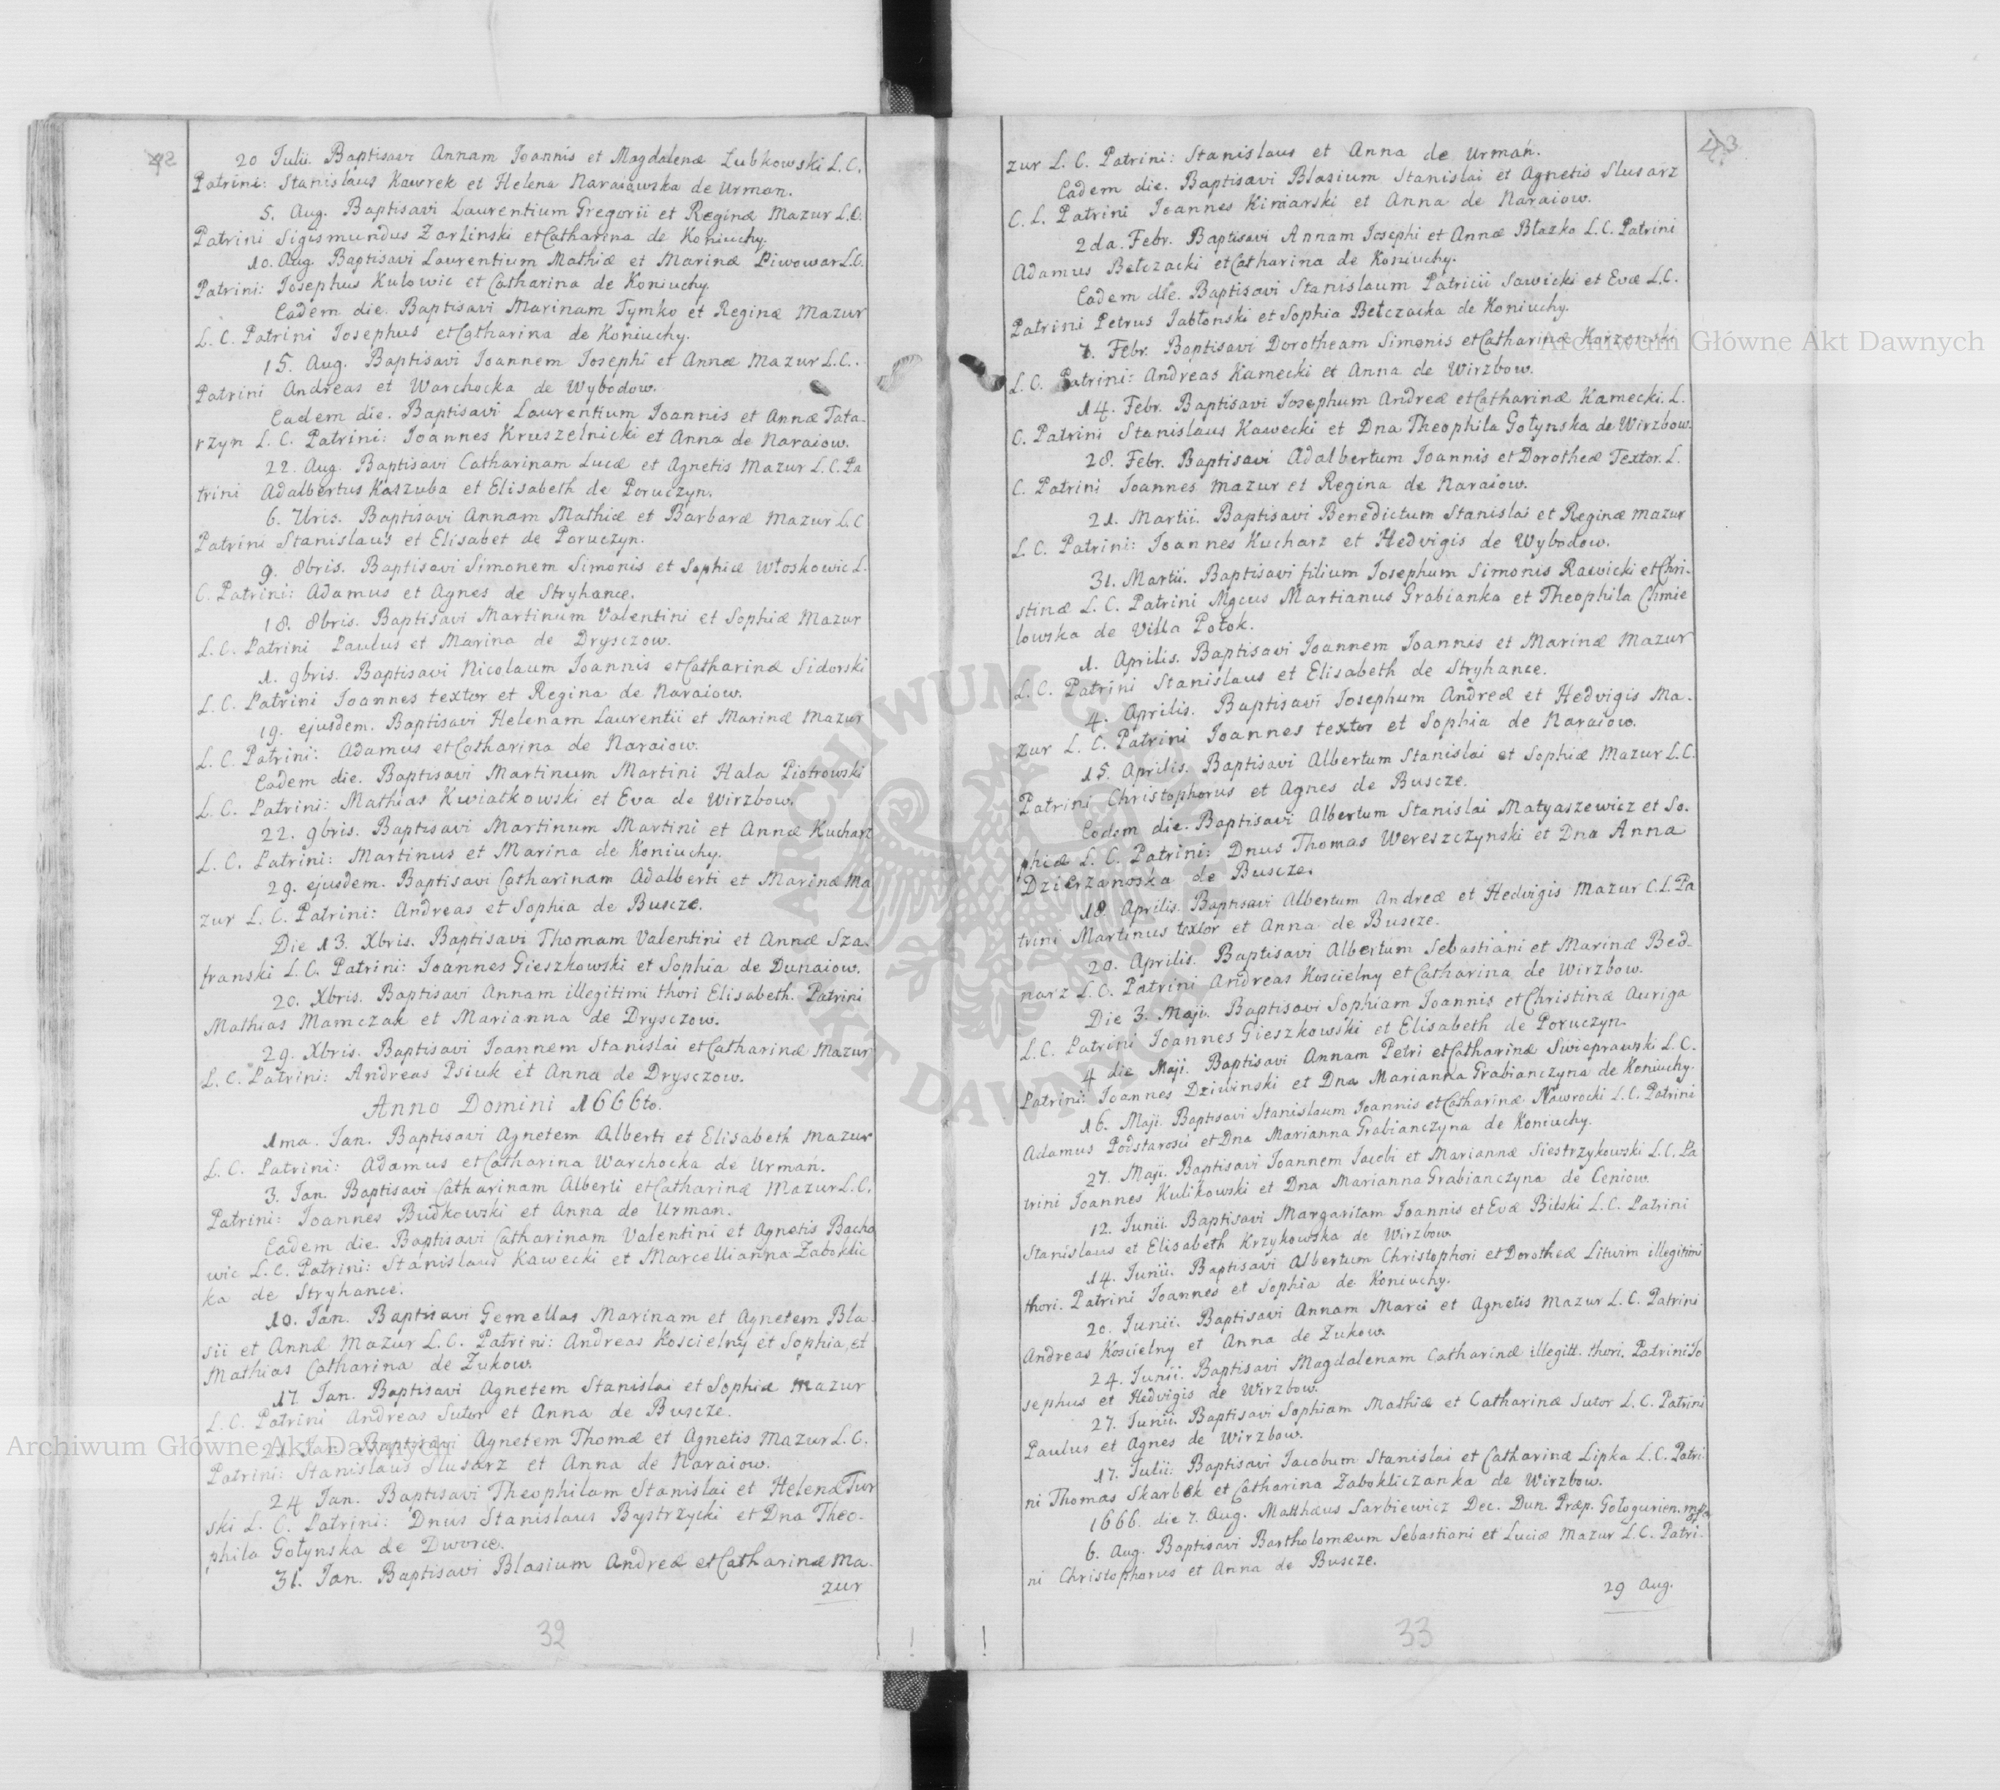 42
20 Iulii. Baptisavi Annam Ioannis et Magdalenæ Lubkowski L. C.
Patrini: Stanislaus Kawrek et Helena Naraiawska de Urman.
5. Aug. Baptisavi Laurentium Gregorii et Reginæ Mazur L. C.
Patrini Sigismundus Zarlinski et Catharina de Koniuchy.
10. Aug. Baptisavi Laurentium Mathiæ et Marinæ Piwowar L. C.
Patrini: Iosephus Kulowic et Catharina de Koniuchy.
Eadem die. Baptisavi Marinam Tymko et Reginæ Mazur
L. C. Patrini Iosephus et Catharina de Koniuchy.
15. Aug. Baptisavi Ioannem Iosephi et Annæ Mazur L. C.
Patrini Andreas et Warchocka de Wybodow.
Eadem die. Baptisavi Laurentium Ioannis et Annæ Tata-
rzyn L. C. Patrini: Ioannes Kruszelnicki et Anna de Naraiow.
22. Aug. Baptisavi Catharinam Lucæ et Agnetis Mazur L. C. Pa
trini Adalbertus Kaszuba et Elisabeth de Poruczyn.
6. 7bris. Baptisavi Annam Mathiæ et Barbaræ Mazur L. C
Patrini Stanislaus et Elisabet de Poruczyn.
9. 8bris. Baptisavi Simonem Simonis et Sophiæ Włoskowic L.
C. Patrini: Adamus et Agnes de Stryhance.
18. 8bris. Baptisavi Martinum Valentini et Sophiæ Mazur
L. C. Patrini Paulus et Marina de Drysczow.
1. 9bris. Baptisavi Nicolaum Ioannis et Catharinæ Sidorski
L. C. Patrini Ioannes textor et Regina de Naraiow.
19. ejusdem. Baptisavi Helenam Laurentii et Marinæ Mazur
L. C. Patrini: Adamus et Catharina de Naraiow.
Eadem die. Baptisavi Martinum Martini Hala Piotrowski
L. C. Patrini: Mathias Kwiatkowski et Eva de Wirzbow.
22. 9bris. Baptisavi Martinum Martini et Annæ Kucharz
L. C. Patrini: Martinus et Marina de Koniuchy.
29. ejusdem. Baptisavi Catharinam Adalberti et Marinæ Ma
zur L. C. Patrini: Andreas et Sophia de Buscze.
Die 13. Xbris. Baptisavi Thomam Valentini et Annæ Sza-
franski L. C. Patrini: Ioannes Gieszkowski et Sophia de Dunaiow.
20. Xbris. Baptisavi Annam illegitimi thori Elisabeth. Patrini
Mathias Mamczak et Marianna de Drysczow.
29. Xbris. Baptisavi Ioannem Stanislai et Catharinæ Mazur
L. C. Patrini: Andreas Psiuk et Anna de Drysczow.
Anno Domini 1666to.
1ma. Ian. Baptisavi Agnetem Alberti et Elisabeth Mazur
L. C. Patrini: Adamus et Catharina Warchocka de Urmań.
3. Ian. Baptisavi Catharinam Alberti et Catharinæ Mazur L. C.
Patrini: Ioannes Budkowski et Anna de Urman.
Eadem die. Baptisavi Catharinam Valentini et Agnetis Bacho
wic L. C. Patrini: Stanislaus Kawecki et Marcellianna Zaboklic
ka de Stryhance.
10. Ian. Baptisavi Gemellas Marinam et Agnetem Bla-
sii et Annæ Mazur L. C. Patrini: Andreas Koscielny et Sophia, et
Mathias Catharina de Zukow.
17. Ian. Baptisavi Agnetem Stanislai et Sophiæ Mazur
L. C. Patrini Andreas Sutor et Anna de Buscze.
21. Ian. Baptisavi Agnetem Thomæ et Agnetis Mazur L. C.
Patrini: Stanislaus Slusarz et Anna de Naraiow.
24 Ian. Baptisavi Theophilam Stanislai et Helenæ Tur
ski L. C. Patrini: Dnus Stanislaus Bystrzycki et Dna Theo-
phila Gołynska de Dworce.
31. Ian. Baptisavi Blasium Andreæ et Catharinæ Ma-
zur
32
43
zur L. C. Patrini: Stanislaus et Anna de Urmań.
Eadem die. Baptisavi Blasium Stanislai et Agnetis Slusarz
C. L. Patrini Ioannes Kimarski et Anna de Naraiow.
2da. Febr. Baptisavi Annam Iosephi et Annæ Blazko L. C. Patrini
Adamus Bełczacki et Catharina de Koniuchy.
Eadem die. Baptisavi Stanislaum Patricii Sawicki et Evæ L. C.
Patrini Petrus Iabłonski et Sophia Bełczacka de Koniuchy.
7. Febr. Baptisavi Dorotheam Simonis et Catharinæ Karzenski
L. C. Patrini: Andreas Kamecki et Anna de Wirzbow.
14. Febr. Baptisavi Iosephum Andreæ et Catharinæ Kamecki. L.
C. Patrini Stanislaus Kawecki et Dna Theophila Gołynska de Wirzbow.
28. Febr. Baptisavi Adalbertum Ioannis et Dorotheæ Textor. L.
C. Patrini Ioannes Mazur et Regina de Naraiow.
21. Martii. Baptisavi Benedictum Stanislai et Reginæ Mazur
L. C. Patrini: Ioannes Kucharz et Hedvigis de Wybodow.
31. Martii. Baptisavi filium Iosephum Simonis Rawicki et Chri-
stinæ L. C. Patrini Mgcus Martianus Grabianka et Theophila Chmie
lowska de Villa Potok.
1. Aprilis. Baptisavi Ioannem Ioannis et Marinæ Mazur
L. C. Patrini Stanislaus et Elisabeth de Stryhance.
4. Aprilis. Baptisavi Iosephum Andreæ et Hedvigis Ma-
zur L. C. Patrini Ioannes textor et Sophia de Naraiow.
15. Aprilis. Baptisavi Albertum Stanislai et Sophiæ Mazur L. C.
Patrini Christophorus et Agnes de Buscze.
Eodem die. Baptisavi Albertum Stanislai Matyaszewicz et So-
phiæ L. C. Patrini: Dnus Thomas Wereszczynski et Dna Anna
Dzierzanoska de Buscze.
18. Aprilis. Baptisavi Albertum Andreæ et Hedvigis Mazur C. L. Pa
trini Martinus textor et Anna de Buscze.
20. Aprilis. Baptisavi Albertum Sebastiani et Marinæ Bed-
narz L. C. Patrini Andreas Koscielny et Catharina de Wirzbow.
Die 3. Maji. Baptisavi Sophiam Ioannis et Christinæ Auriga
L. C. Patrini Ioannes Gieszkowski et Elisabeth de Poruczyn.
4 die Maji. Baptisavi Annam Petri et Catharinæ Swieprawski L. C.
Patrini: Ioannes Dziwinski et Dna Marianna Grabianczyna de Koniuchy.
16. Maji. Baptisavi Stanislaum Ioannis et Catharinæ Nawrocki L. C. Patrini
Adamus Podstarosci et Dna Marianna Grabianczyna de Koniuchy.
27. Maji. Baptisavi Ioannem Iacobi et Mariannæ Siestrzykowski L. C. Pa
trini Ioannes Kulikowski et Dna Marianna Grabianczyna de Ceniow.
12. Iunii. Baptisavi Margaritam Ioannis et Evæ Bilski L. C. Patrini
Stanislaus et Elisabeth Krzykowska de Wirzbow.
14. Iunii. Baptisavi Albertum Christophori et Dorotheæ Litwim illegitimi
thori. Patrini Ioannes et Sophia de Koniuchy.
20. Iunii. Baptisavi Annam Marci et Agnetis Mazur L. C. Patrini
Andreas Koscielny et Anna de Zukow.
24. Iunii. Baptisavi Magdalenam Catharinæ illegitt. thori. Patrini Io
sephus et Hedvigis de Wirzbow.
27. Iunii. Baptisavi Sophiam Mathiæ et Catharinæ Sutor L. C. Patrini
Paulus et Agnes de Wirzbow.
17. Iulii. Baptisavi Iacobum Stanislai et Catharinæ Lipka L. C. Patri-
ni Thomas Skarbek et Catharina Zabokliczanka de Wirzbow.
1666. die 7. Aug. Matthæus Sarbiewicz Dec. Dun. Præp. Gołogurien. mpa
6. Aug. Baptisavi Bartholomæum Sebastiani et Luciæ Mazur L. C. Patri-
ni Christophorus et Anna de Buscze.
29 Aug.
33
Archiwum Główne Akt Dawnych
Archiwum Główne Akt Dawnych
ARCHIWUM GŁÓWNE AKT DAWNYCH